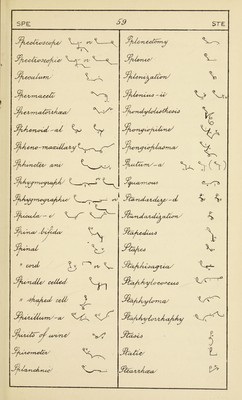 SPE
59
STE
Spectroscope or
Spectroscopic or
Speculum
Spermaceti
Spermatorrhœa
Sphenoid-al
Spheno-maxillary
Sphincter ani
Sphygmograph
Sphygmographic or
Spicula-e
Spina bifida
Spinal
" cord or
Spindle celled
" shaped cell
Spirillum-a
Spirits of wine
Spirometer
Splanchnic
Splenectomy
Splenic
Splenization
Splenius-ii
Spondylolisthesis
Spongiopiline
Spongioplasma
Sputum-a
Squamous
Standardize-d
Standardization
Stapedius
Stapes
Staphisagria
Staphylococcus
Staphyloma
Staphylorrhaphy
Stasis
Static
Stearrhœa